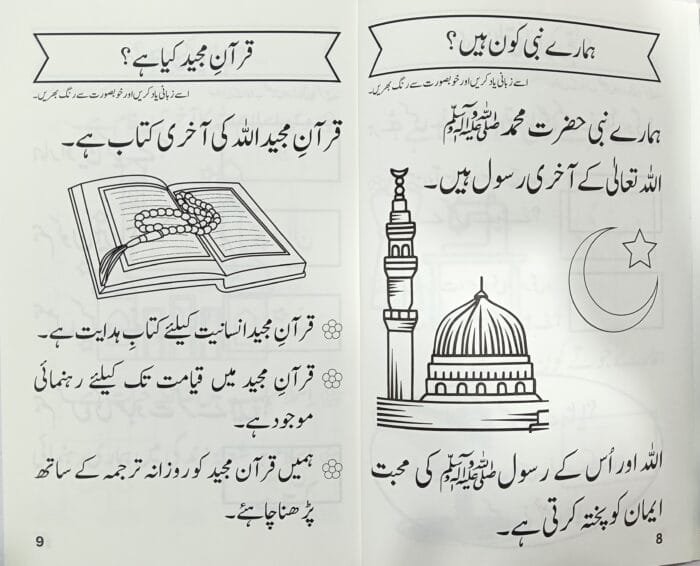 ہمارے نبی کون ہیں؟
اسے زبانی یاد کریں اور خوبصورت سے رنگ بھریں۔
ہمارے نبی حضرت محمد ﷺ
اللہ تعالیٰ کے آخری رسول ہیں۔
اللہ اور اُس کے رسول ﷺ کی محبت
ایمان کو پختہ کرتی ہے۔
8
قرآنِ مجید کیا ہے؟
اسے زبانی یاد کریں اور خوبصورت سے رنگ بھریں۔
قرآنِ مجید اللہ کی آخری کتاب ہے۔
قرآنِ مجید انسانیت کیلئے کتابِ ہدایت ہے۔
قرآنِ مجید میں قیامت تک کیلئے رہنمائی
موجود ہے۔
ہمیں قرآن مجید کو روزانہ ترجمہ کے ساتھ
پڑھنا چاہئے۔
9